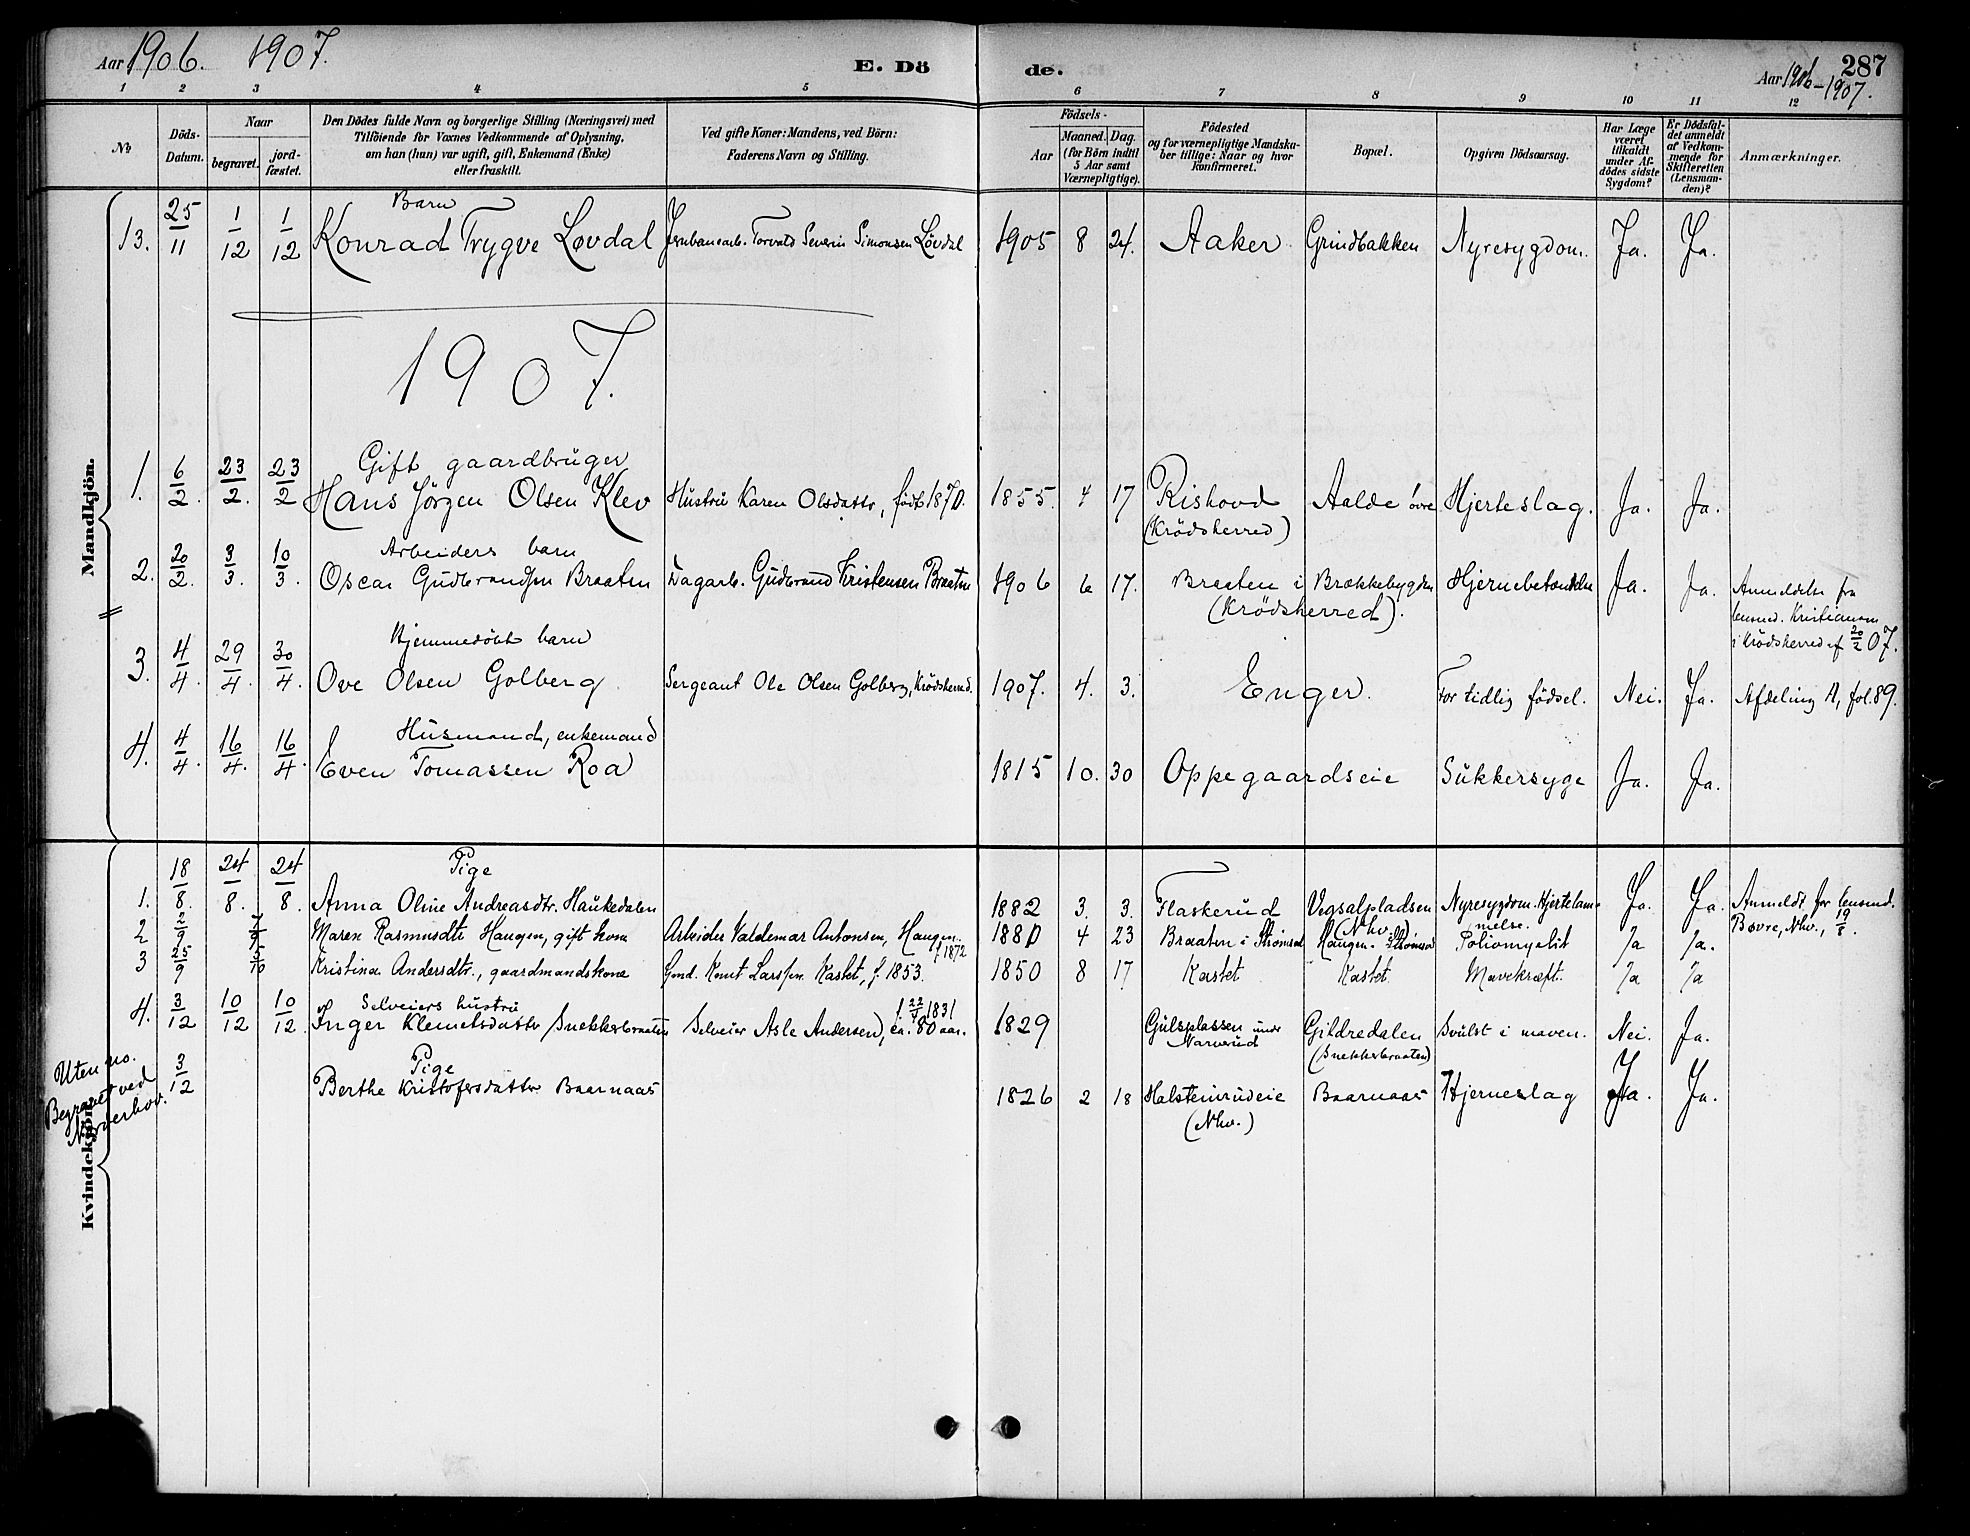 Aar 1906. 1907. E. Döde. Aar 1906-1907. 287
1 2 3 4 5 6 7 8 9 10 11 12
No
Döds-Datum.
Naar
begravet.
jordfæstet.
Den Dödes fulde Navn og borgerlige Stilling (Næringsvei) med
Tilföiende for Voxnes Vedkommende af Oplysning,
om han (hun) var ugift, gift, Enkemand (Enke)
eller fraskilt.
Ved gifte Koner: Mandens, ved Börn:
Faderens Navn og Stilling.
Födsels-
Aar
Maaned. Dag.
(for Börn indtil
5 Aar samt
Værnepligtige).
Födested
og for værnepligtige Mandskaber tillige: Naar og hvor
konfirmeret.
Bopæl.
Opgiven Dödsaarsag.
Har Læge
været
tilkaldt
under Afdödes sidste
Sygdom?
Er Dödsfaldet anmeldt
af Vedkommende for
Skifteretten
(Lensmanden)?
Anmærkninger.
Mandkjön.
Barn
13. 25/11 1/12 1/12 Konrad Trygve Løvdal Jernbanearb. Torvald Severin Simonsen Løvdal 1905 8 24. Aaker Grindbakken Nyresygdom. Ja. Ja.
1907.
Gift gaardbruger
1. 6/2. 23/2. 23/2 Hans Jörgen Olsen Klev Hustru Karen Olsdattr, födt 1870. 1855. 4 17 Rishovd Aalde övre Hjerteslag. Ja. Ja.
(Krödsherred)
Arbeiders barn
2. 20/2. 3/3. 10/3. Oscar Gudbrandsen Braaten Dagarb. Gudbrand Kristensen Braaten 1906 6 17. Braaten i Brækkebygden Hjernebetændelse Ja. Ja. Anmeldelse fra
(Krödsherred). lensmd. Kristiansen
i Krödsherred af 20/2 07.
Hjemmedöbt barn
3. 4/4. 29/4. 30/4. Ove Olsen Golberg Sergeant Ole Olsen Golberg, Krödsherred. 1907. 4. 3. Enger. For tidlig födsel. Nei. Ja. Afdeling A, fol. 89.
Husmand, enkemand
4. 4/4. 16/4. 16/4. Even Tomassen Roa 1815 10. 30 Oppegaardseie Sukkersyge Ja. Ja.
Kvindekjön.
Pige
1. 18/8. 24/8. 24/8. Anna Oline Andreasdtr. Haukedalen 1882 3. 3. Flaskerud Vegsalpladsen Nyresygdom. Hjertelam- Ja. Ja. Anmeldt for lensmd.
(Nhv.) melse. Bøvre, Nhv., 19/8.
2 2/9 7/9 Maren Rasmusdtr Haugen, gift kone Arbeider Valdemar Antonsen, Haugen. f. 1872 1880 4 23 Braaten i Strömsod Haugen. Strömsod Poliomyelit Ja Ja.
3 25/9 5/10 Kristina Andersdtr., gaardmandskone Gmd. Knut Larssen Kastet, f. 1853. 1850 8 17 Kastet Kastet. Mavekræft. Ja Ja
Selveiers hustru f. 22/4 1831
4. 3/12 10/12 10/12. Inger Klemetsdattr Snekkerbraaten Selveier Asle Andersen, ca. 80 aar. 1829 Gulsplassen under Gildredalen Svulst i maven. Nei. Ja.
Narverud (Snekkerbraaten)
Uten no.
Begravet ved
Norderhov.
Pige
3/12 Berthe Kristofersdattr Baarnaas 1826 2 18 Halsteinrudeie Baarnaas Hjerneslag Ja. Ja.
(Nhv.)